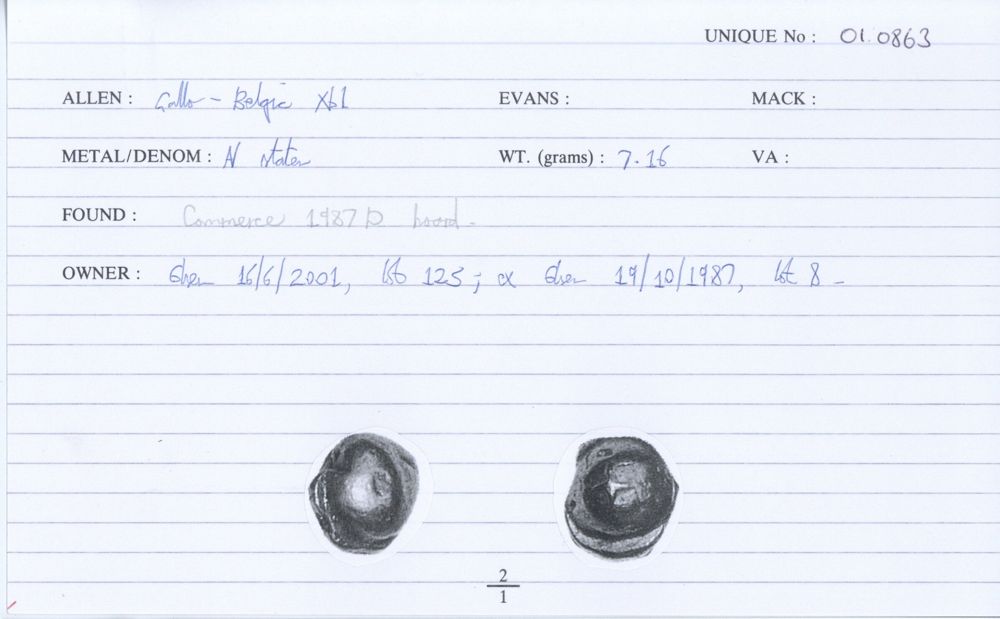 UNIQUE No : 01.0863
ALLEN : Gallo-Belgic Xb1 EVANS : MACK :
METAL/DENOM : N stater WT. (grams) : 7.16 VA :
FOUND : Commerce 1987 hoard.
OWNER : Elsen 16/6/2001, lot 125; ex Elsen 19/10/1987, lot 8 -
2
1